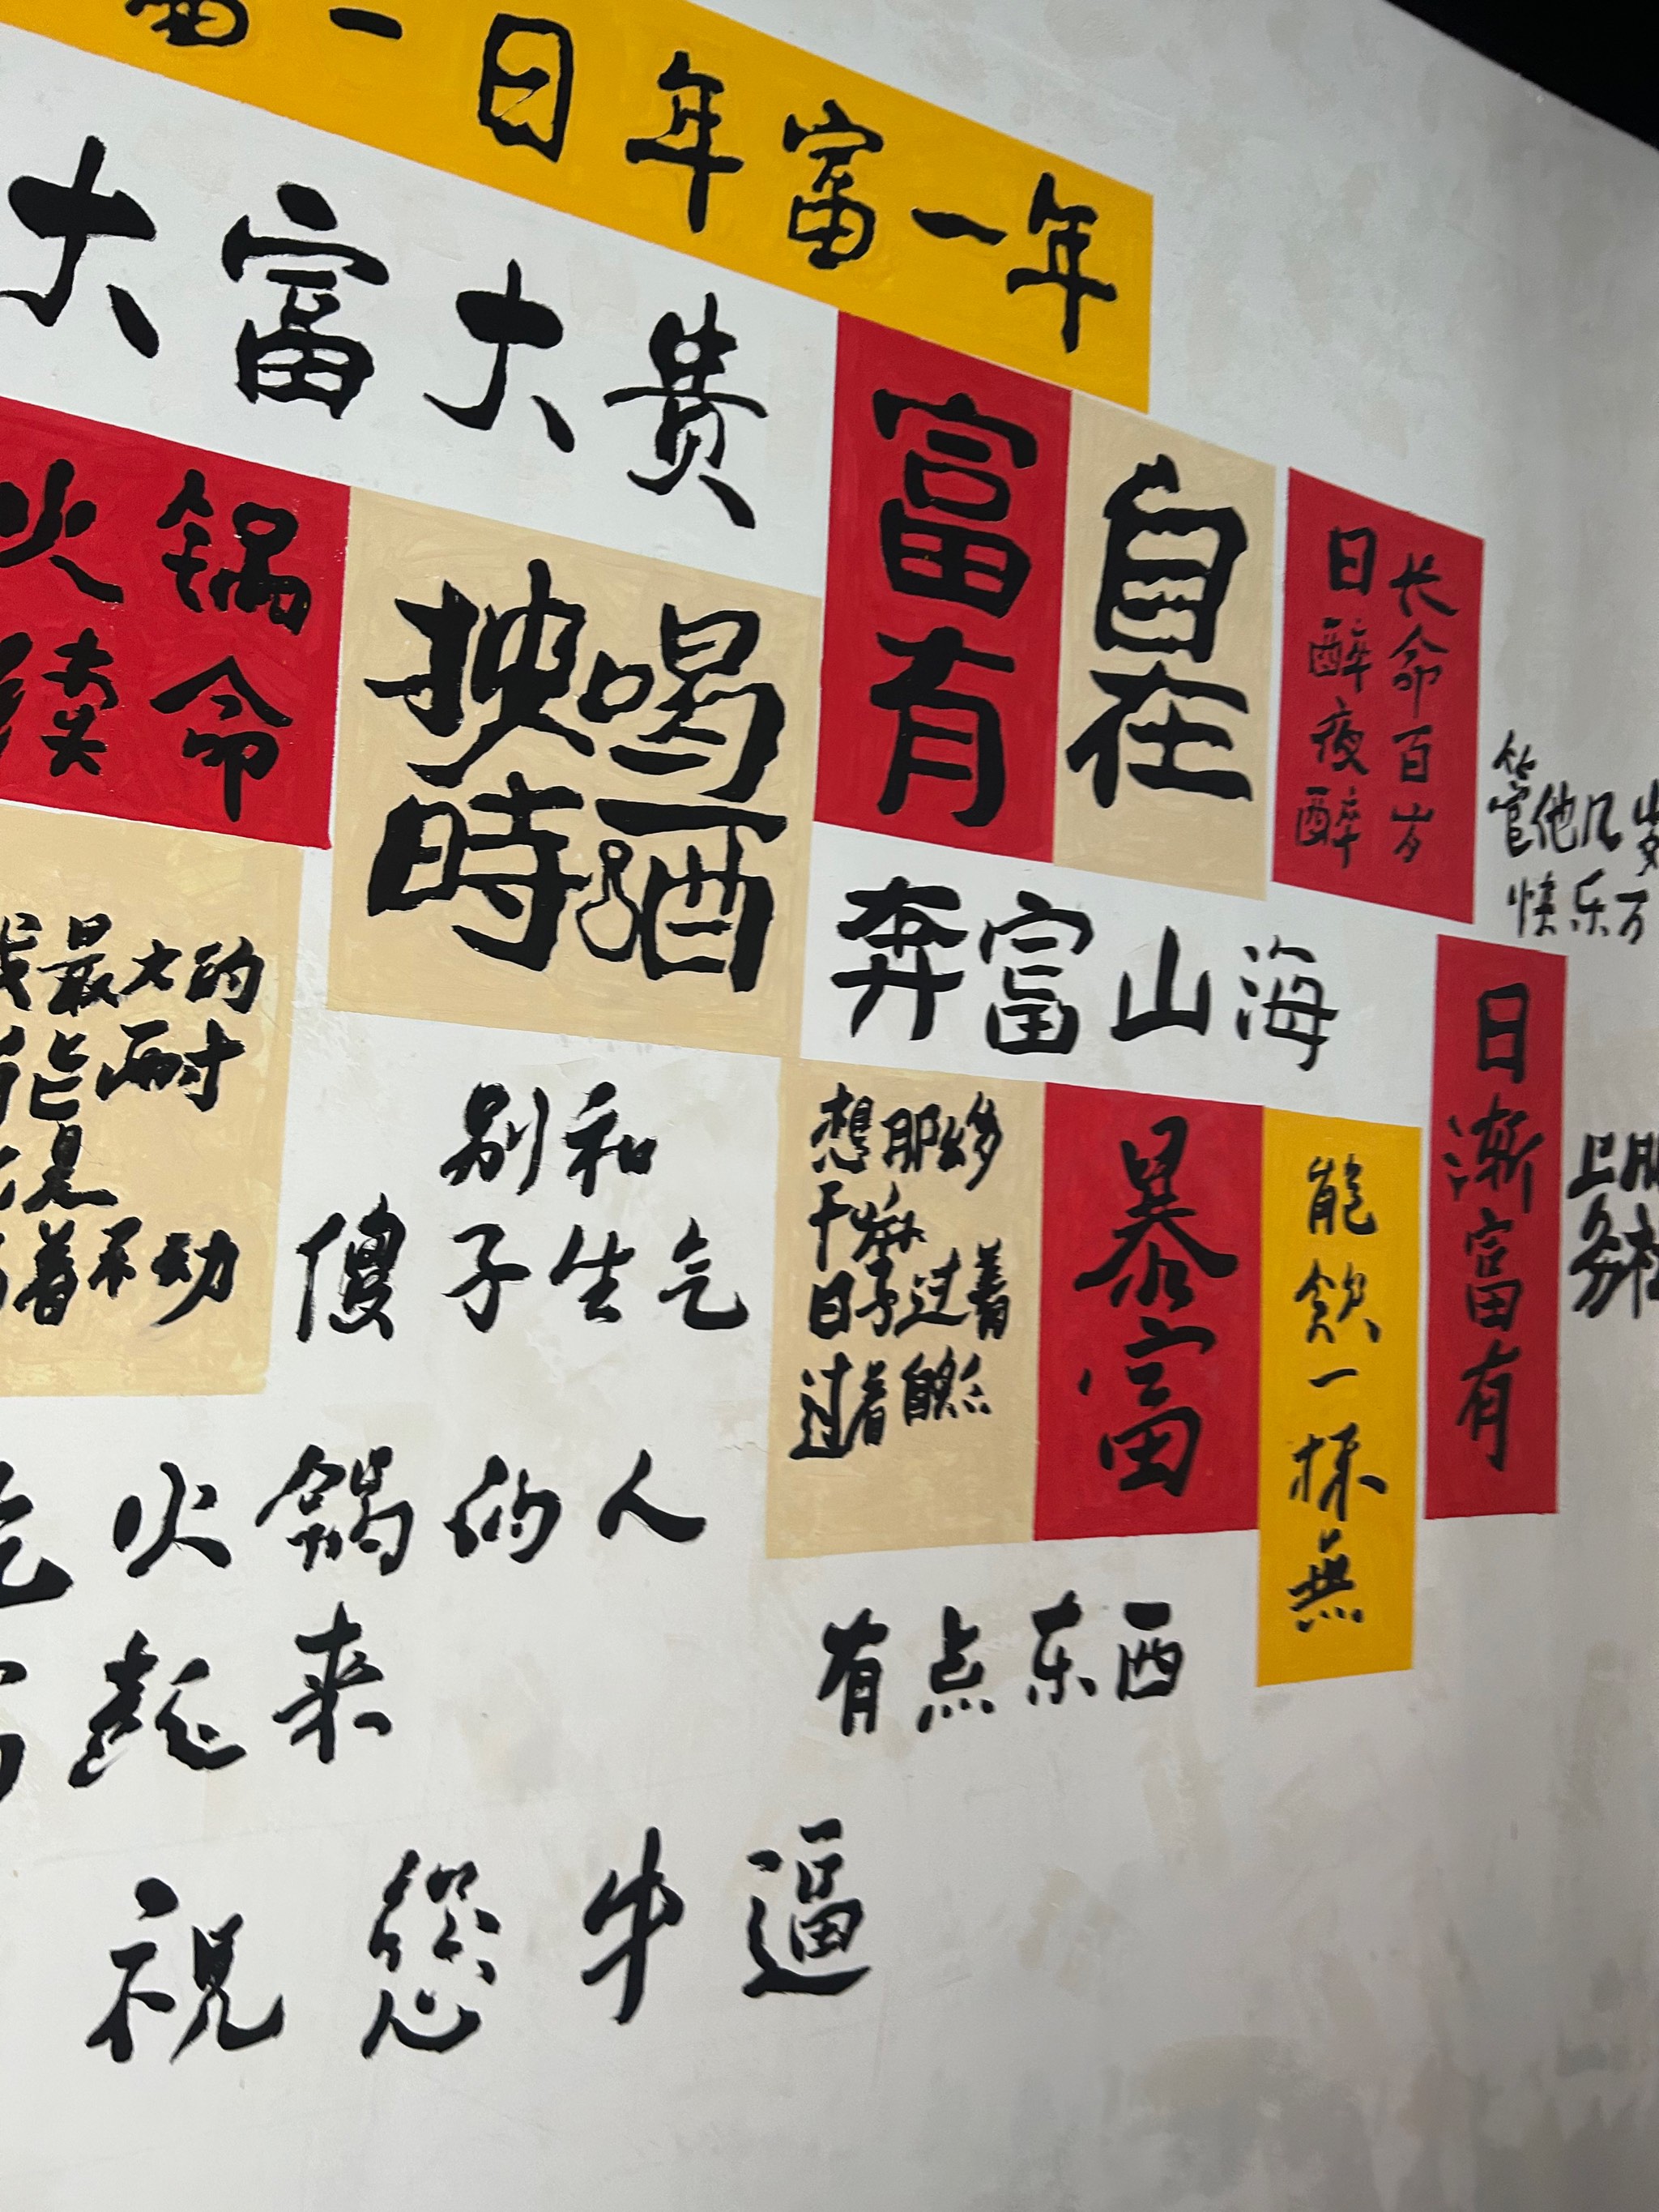 富一日年富一年
大富大贵
火锅
续命
喝酒
時
富有
自在
长命百岁
日醉夜醉
管他几岁
快乐万
奔富山海
日渐富有
我最大的
能耐
是
着不动
别和
傻子生气
想那么多
干嘛
日子过着
过着自然
暴富
能飲一杯無
上
务
吃火锅的人
起来
有点东西
祝您牛逼